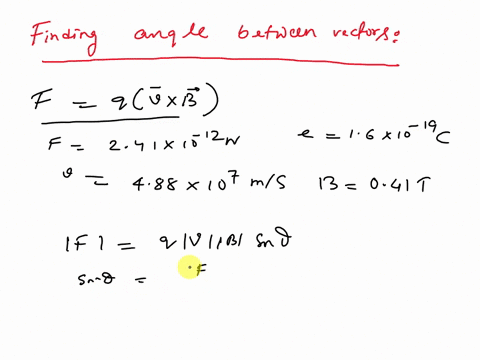 Finding angle between vectors:
F = q(v̄ × B⃗)
F = 2.41 × 10⁻¹² N e = 1.6 × 10⁻¹⁹ C
v = 4.88 × 10⁷ m/s B = 0.41 T
|F| = q |V| |B| Sinθ
Sinθ = F